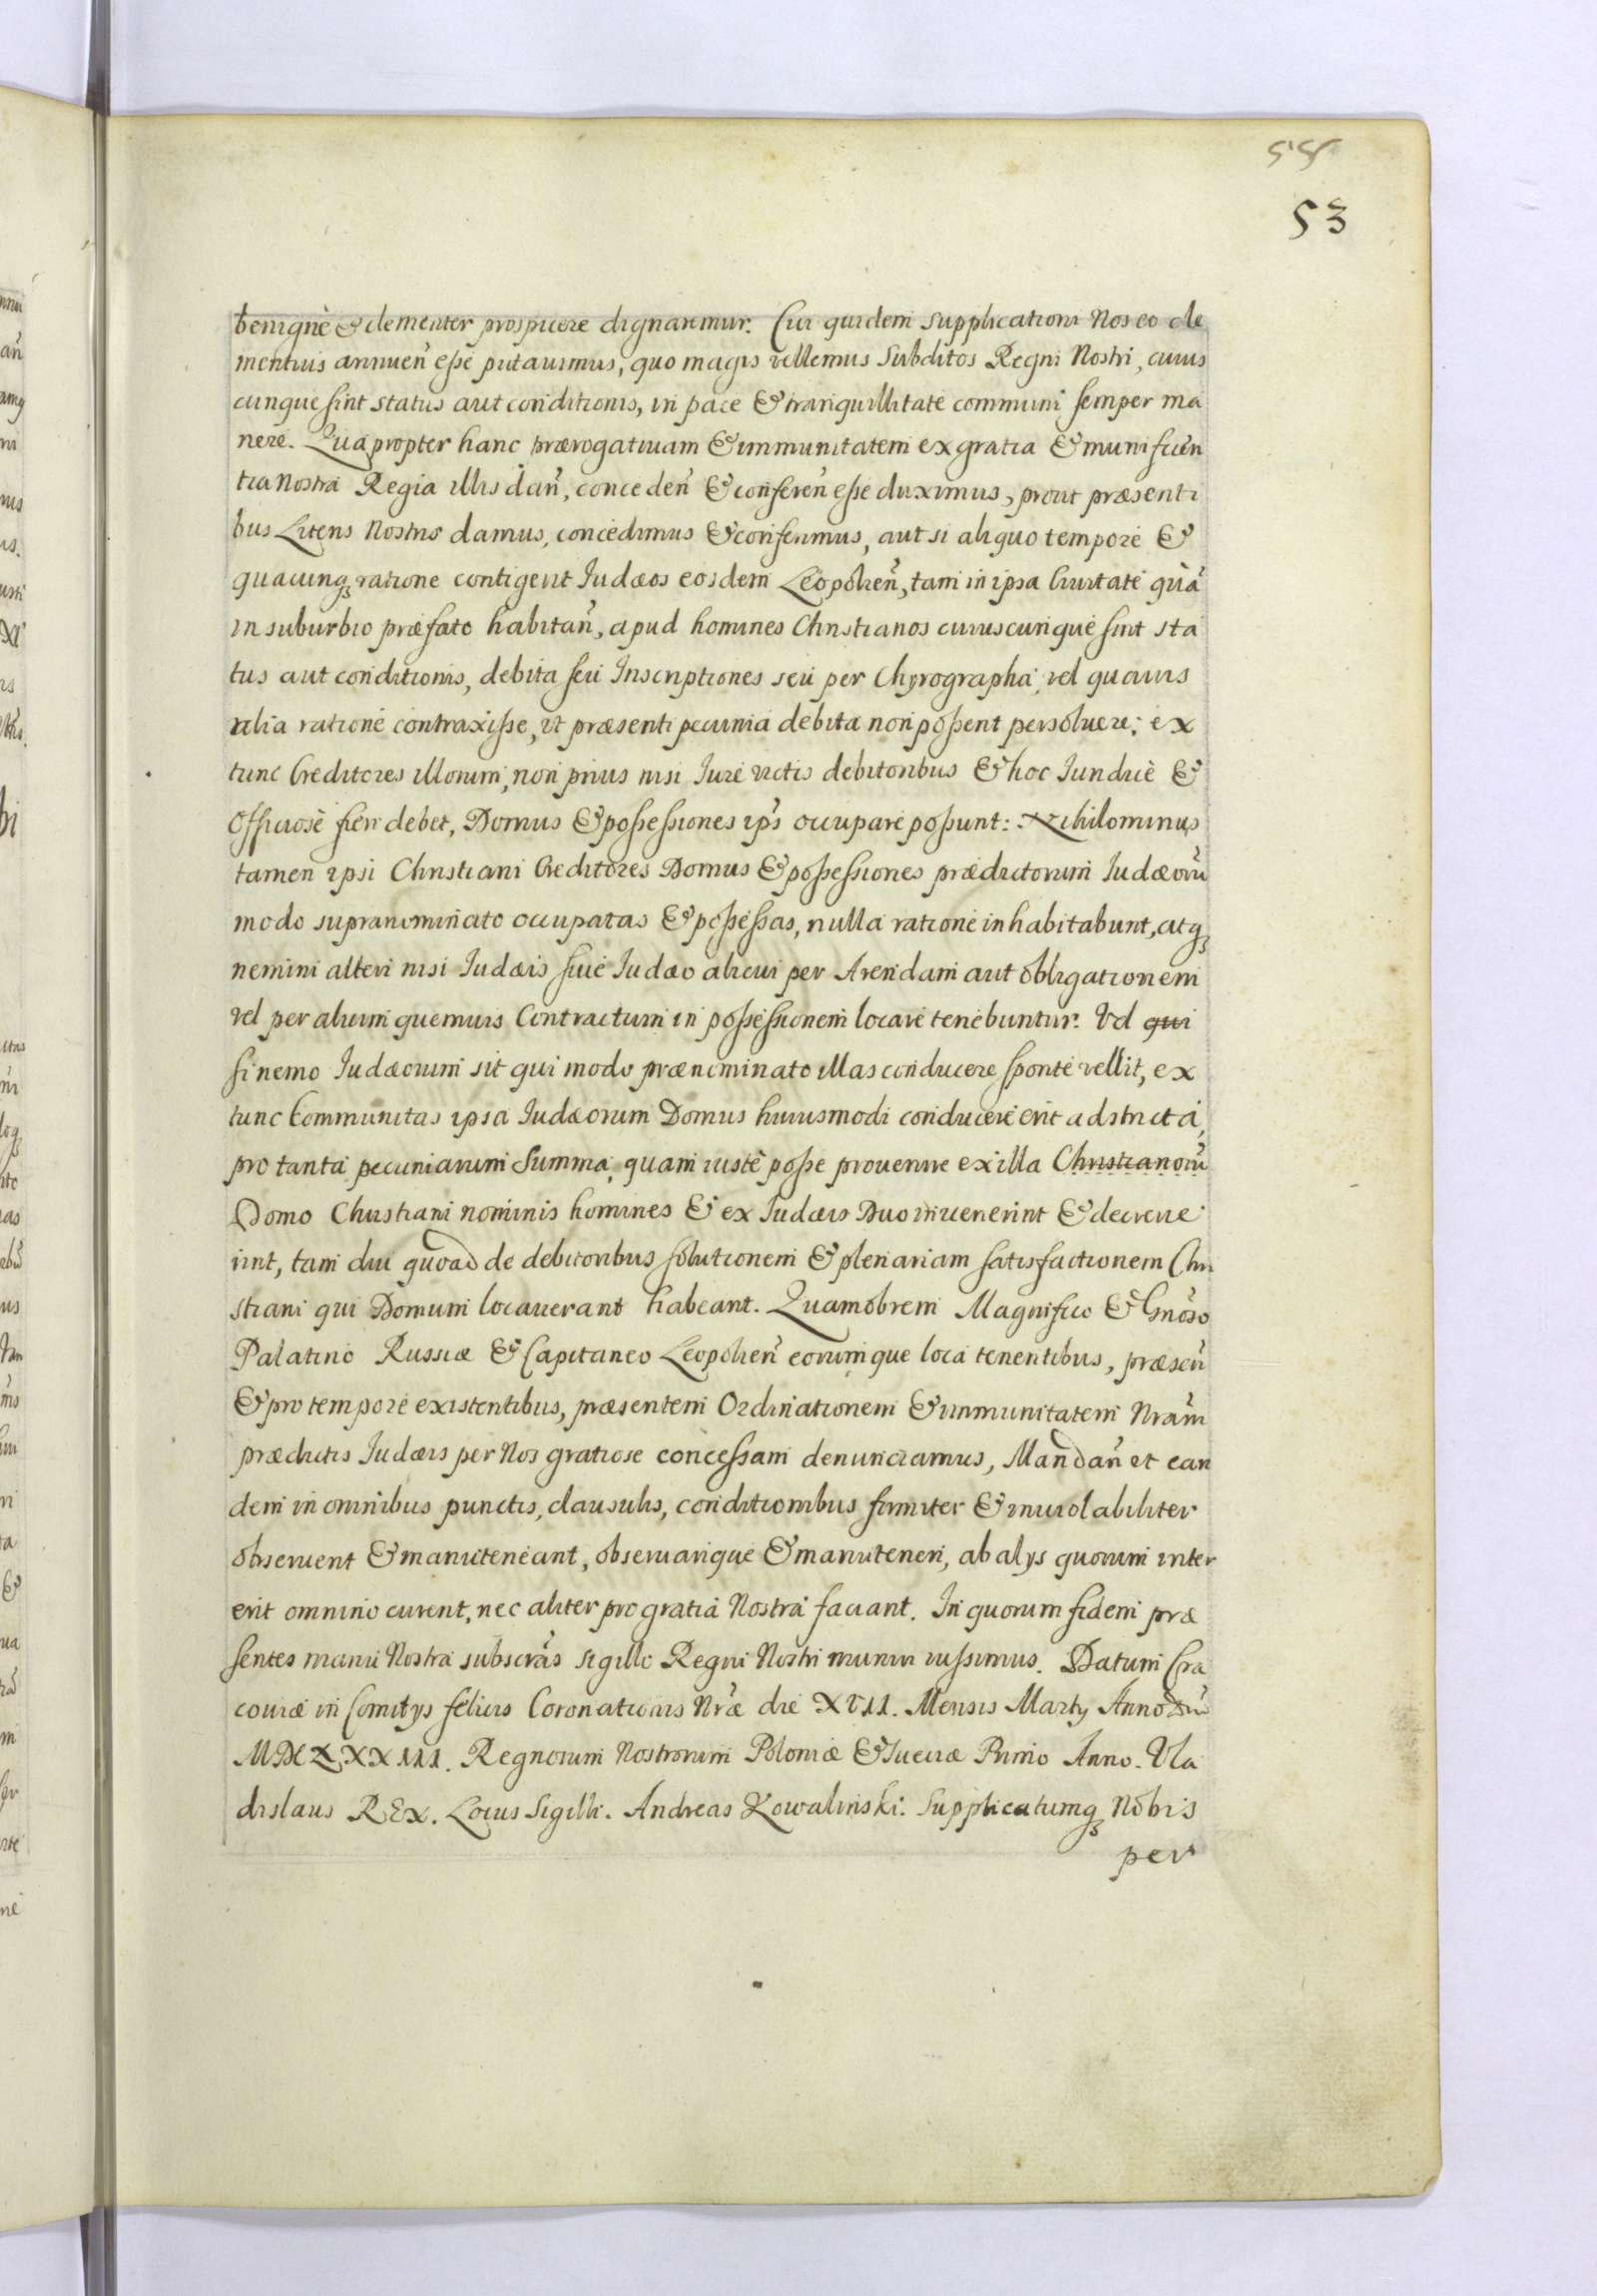 55
53
benignè & clementer prospicere dignaremur. Cui quidem supplicationi Nos eo cle
mentius annuen̄ esse putauimus, quo magis vellemus Subditos Regni Nostri, cuius
cunque sint status aut conditionis, in pace & tranquillitate communi semper ma
nere. Quapropter hanc prærogatiuam & immunitatem ex gratia & munificen
tia Nostra Regia illis dan̄, conceden̄ & conferen̄ esse duximus, prout præsenti
bus Literis Nostris damus, concedimus & conferimus, aut si aliquo tempore &
quacunqꝫ ratione contigerit Iudæos eosdem Leopolien̄, tam in ipsa Ciuitate quā
in suburbio præfato habitan̄, apud homines Christianos cuiuscunque sint sta
tus aut conditionis, debita seu Inscriptiones seu per Chyrographa, vel quauis
alia ratione contraxisse, vt præsenti pecunia debita non possent persoluere; ex
tunc Creditores illorum, non prius nisi Iure victis debitoribus & hoc Iuridicè &
Officiosè fieri debet, Domus & possessiones ip̄s occupare possunt: Nihilominus
tamen ipsi Christiani Creditores Domus & possessiones prædictorum Iudæorū
modo supranominato occupatas & possessas, nulla ratione inhabitabunt, atqꝫ
nemini alteri nisi Iudæis siue Iudæo alicui per Arendam aut obligationem
vel per alium quemuis Contractum in possessionem locare tenebuntur. Vel qui
si nemo Iudæorum sit qui modo prænominato illas conducere sponte vellit, ex
tunc Communitas ipsa Iudæorum Domus huiusmodi conducere erit adstricta,
pro tanta pecuniarum Summa, quam iustè posse prouenire ex illa Christianorū
Domo Christiani nominis homines & ex Iudæis Duo inuenerint & decreue
rint, tam diu quoad de debitoribus solutionem & plenariam satisfactionem Chri
stiani qui Domum locauerant habeant. Quamobrem Magnifico & Gn̄oso
Palatino Russiæ & Capitaneo Leopolien̄ eorumque loca tenentibus, præsen̄
& pro tempore existentibus, præsentem Ordinationem & immunitatem Nr̄am
prædictis Iudæis per Nos gratiose concessam denunciamus, Mandan̄ vt ean
dem in omnibus punctis, clausulis, conditionibus firmiter & inuiolabiliter
obseruent & manuteneant, obseruarique & manuteneri, ab alijs quorum inter
erit omnino curent, nec aliter pro gratia Nostra faciant. In quorum fidem præ
sentes manu Nostra subscrās sigillo Regni Nostri muniri iussimus. Datum Cra
couiæ in Comitijs felicis Coronationis Nr̄æ die XVII. Mensis Martij Anno Dn̄i
MDCXXXIII. Regnorum Nostrorum Poloniæ & Sueciæ Primo Anno. Vla
dislaus REX. Locus Sigilli. Andreas Kowalinski. Supplicatumqꝫ Nobis
per